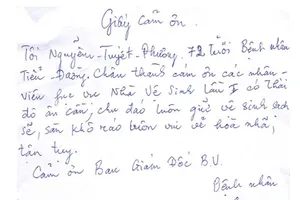 Giấy cảm ơn.
Tôi Nguyễn-Tuyết-Phượng 72 tuổi Bệnh nhân
Tiểu-Đường. Chân thành cám ơn các nhân
viên fục vụ Nhà Vệ Sinh lần I có thái
độ ân cần, chu đáo luôn giữ vệ sinh sạch
sẽ, sàn khô ráo luôn vui vẻ hòa nhã,
tận tụy.
Cảm ơn Ban Giám Đốc B.V.
Bệnh nhân